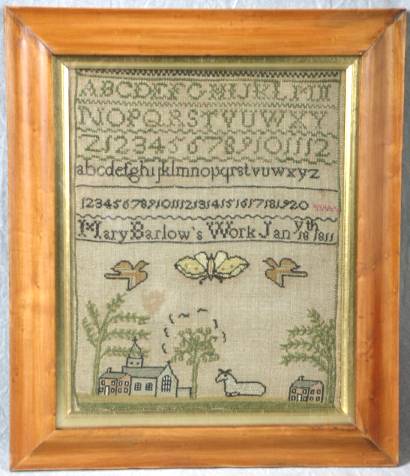 ABCDEFGHIJKLM
NOPQRSTVUWXY
Z123456789101112
abcdefghijklmnopqrstvuwxyz
1234567891011121314151617181920
Mary Barlow's Work Jany 18th 1811